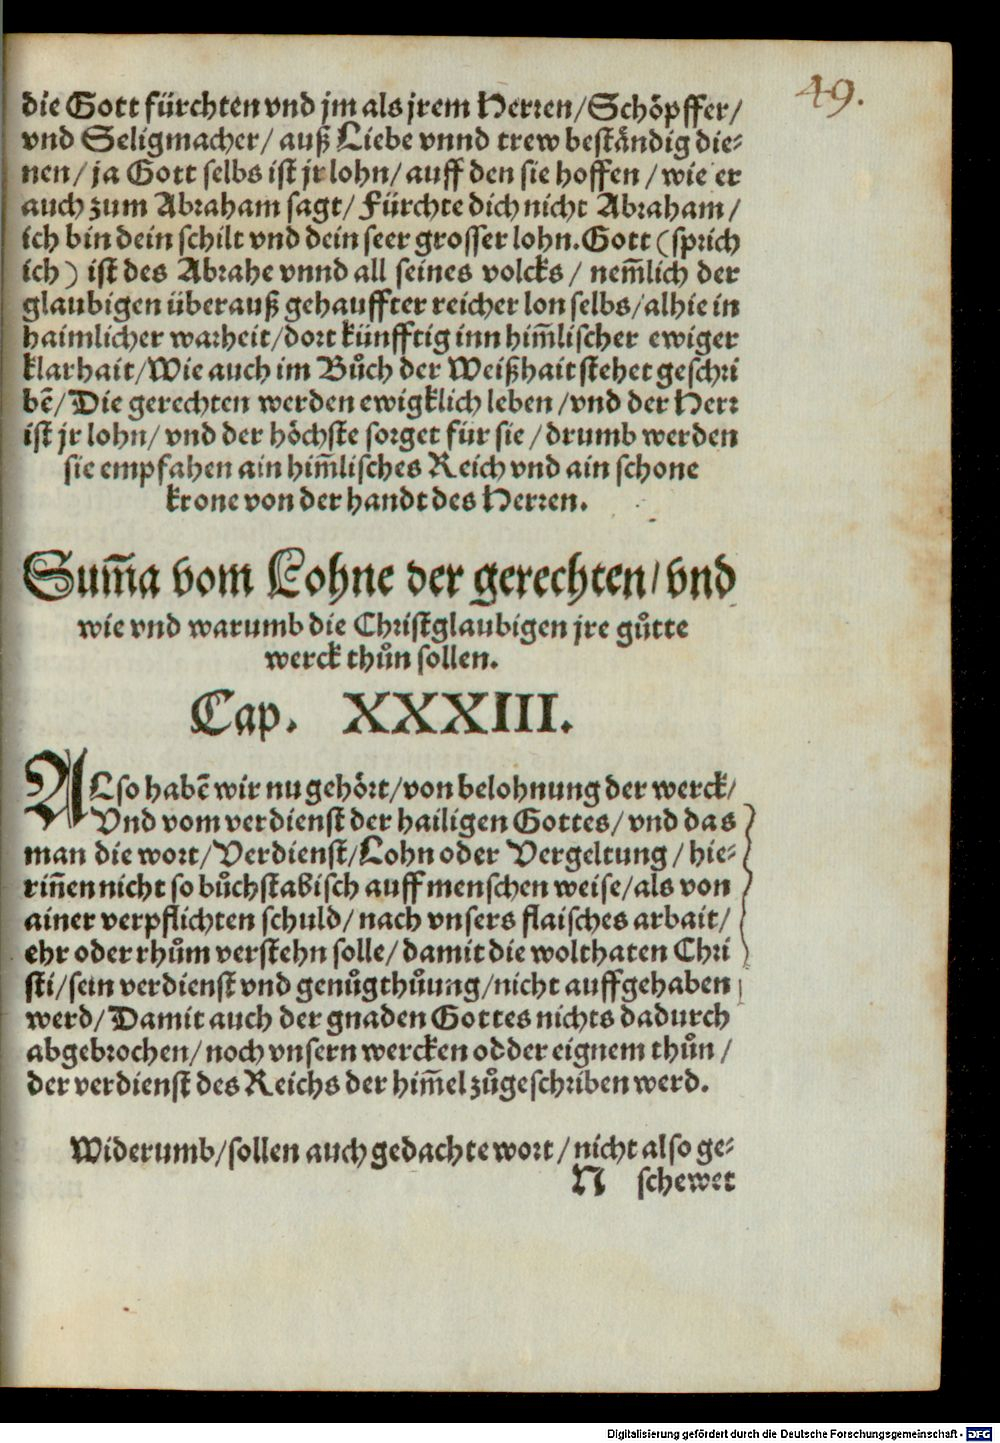 49.
die Gott fürchten vnd jm als jrem Herren/Schöpffer/
vnd Seligmacher/ auß Liebe vnnd trew beständig die⸗
nen/ ja Gott selbs ist jr lohn/ auff den sie hoffen/ wie er
auch zum Abraham sagt/ Fürchte dich nicht Abraham/
ich bin dein schilt vnd dein seer grosser lohn. Gott (sprich
ich) ist des Abrahe vnnd all seines volcks/ nem̃lich der
glaubigen überauß gehauffter reicher lon selbs/alhie in
haimlicher warheit/dort künfftig inn him̃lischer ewiger
klarhait/Wie auch im Bůch der Weißhait stehet geschri
bẽ/Die gerechten werden ewigklich leben/vnd der Herr
ist jr lohn/ vnd der höchste sorget für sie/ drumb werden
sie empfahen ain him̃lisches Reich vnd ain schone
krone von der handt des Herren.
Sum̃a vom Lohne der gerechten/ vnd
wie vnd warumb die Christglaubigen jre gůtte
werck thůn sollen.
Cap. XXXIII.
ALso habẽ wir nu gehört/von belohnung der werck/
Vnd vom verdienst der hailigen Gottes/ vnd das
man die wort/Verdienst/Lohn oder Vergeltung/ hie⸗
riñen nicht so bůchstabisch auff menschen weise/als von
ainer verpflichten schuld/ nach vnsers flaisches arbait/
ehr oder rhům verstehn solle/ damit die wolthaten Chri
sti/sein verdienst vnd genůgthůung/nicht auffgehaben
werd/ Damit auch der gnaden Gottes nichts dadurch
abgebrochen/ noch vnsern wercken odder eignem thůn/
der verdienst des Reichs der him̃el zůgeschriben werd.
Widerumb/sollen auch gedachte wort/ nicht also ge⸗
N schewet
Digitalisierung gefördert durch die Deutsche Forschungsgemeinschaft - DFG